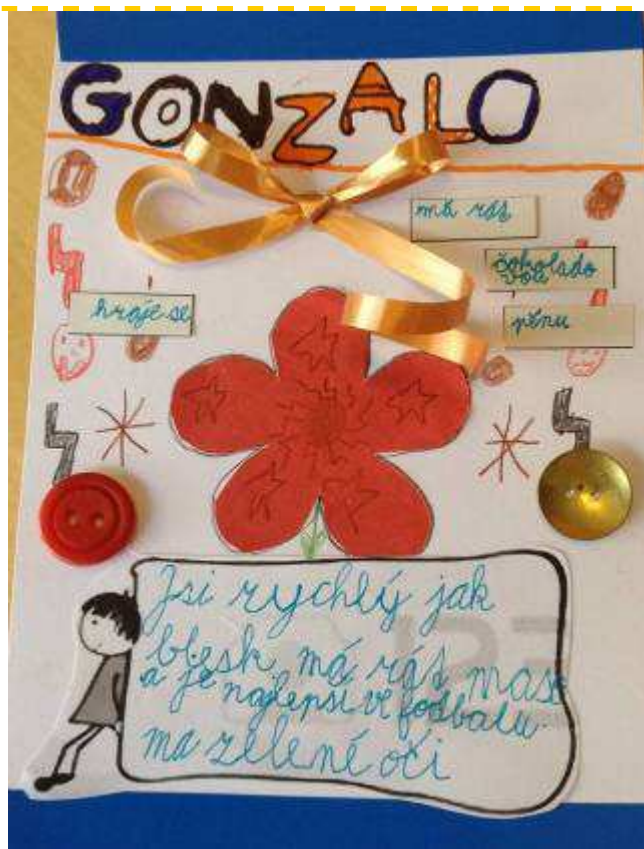 GONZALO
má rád
čokolado
vou
hraje se
pěnu
Jsi rychlý jak
blesk, má rád maso
a je najlepsi ve fotbalu.
ma zelené oči